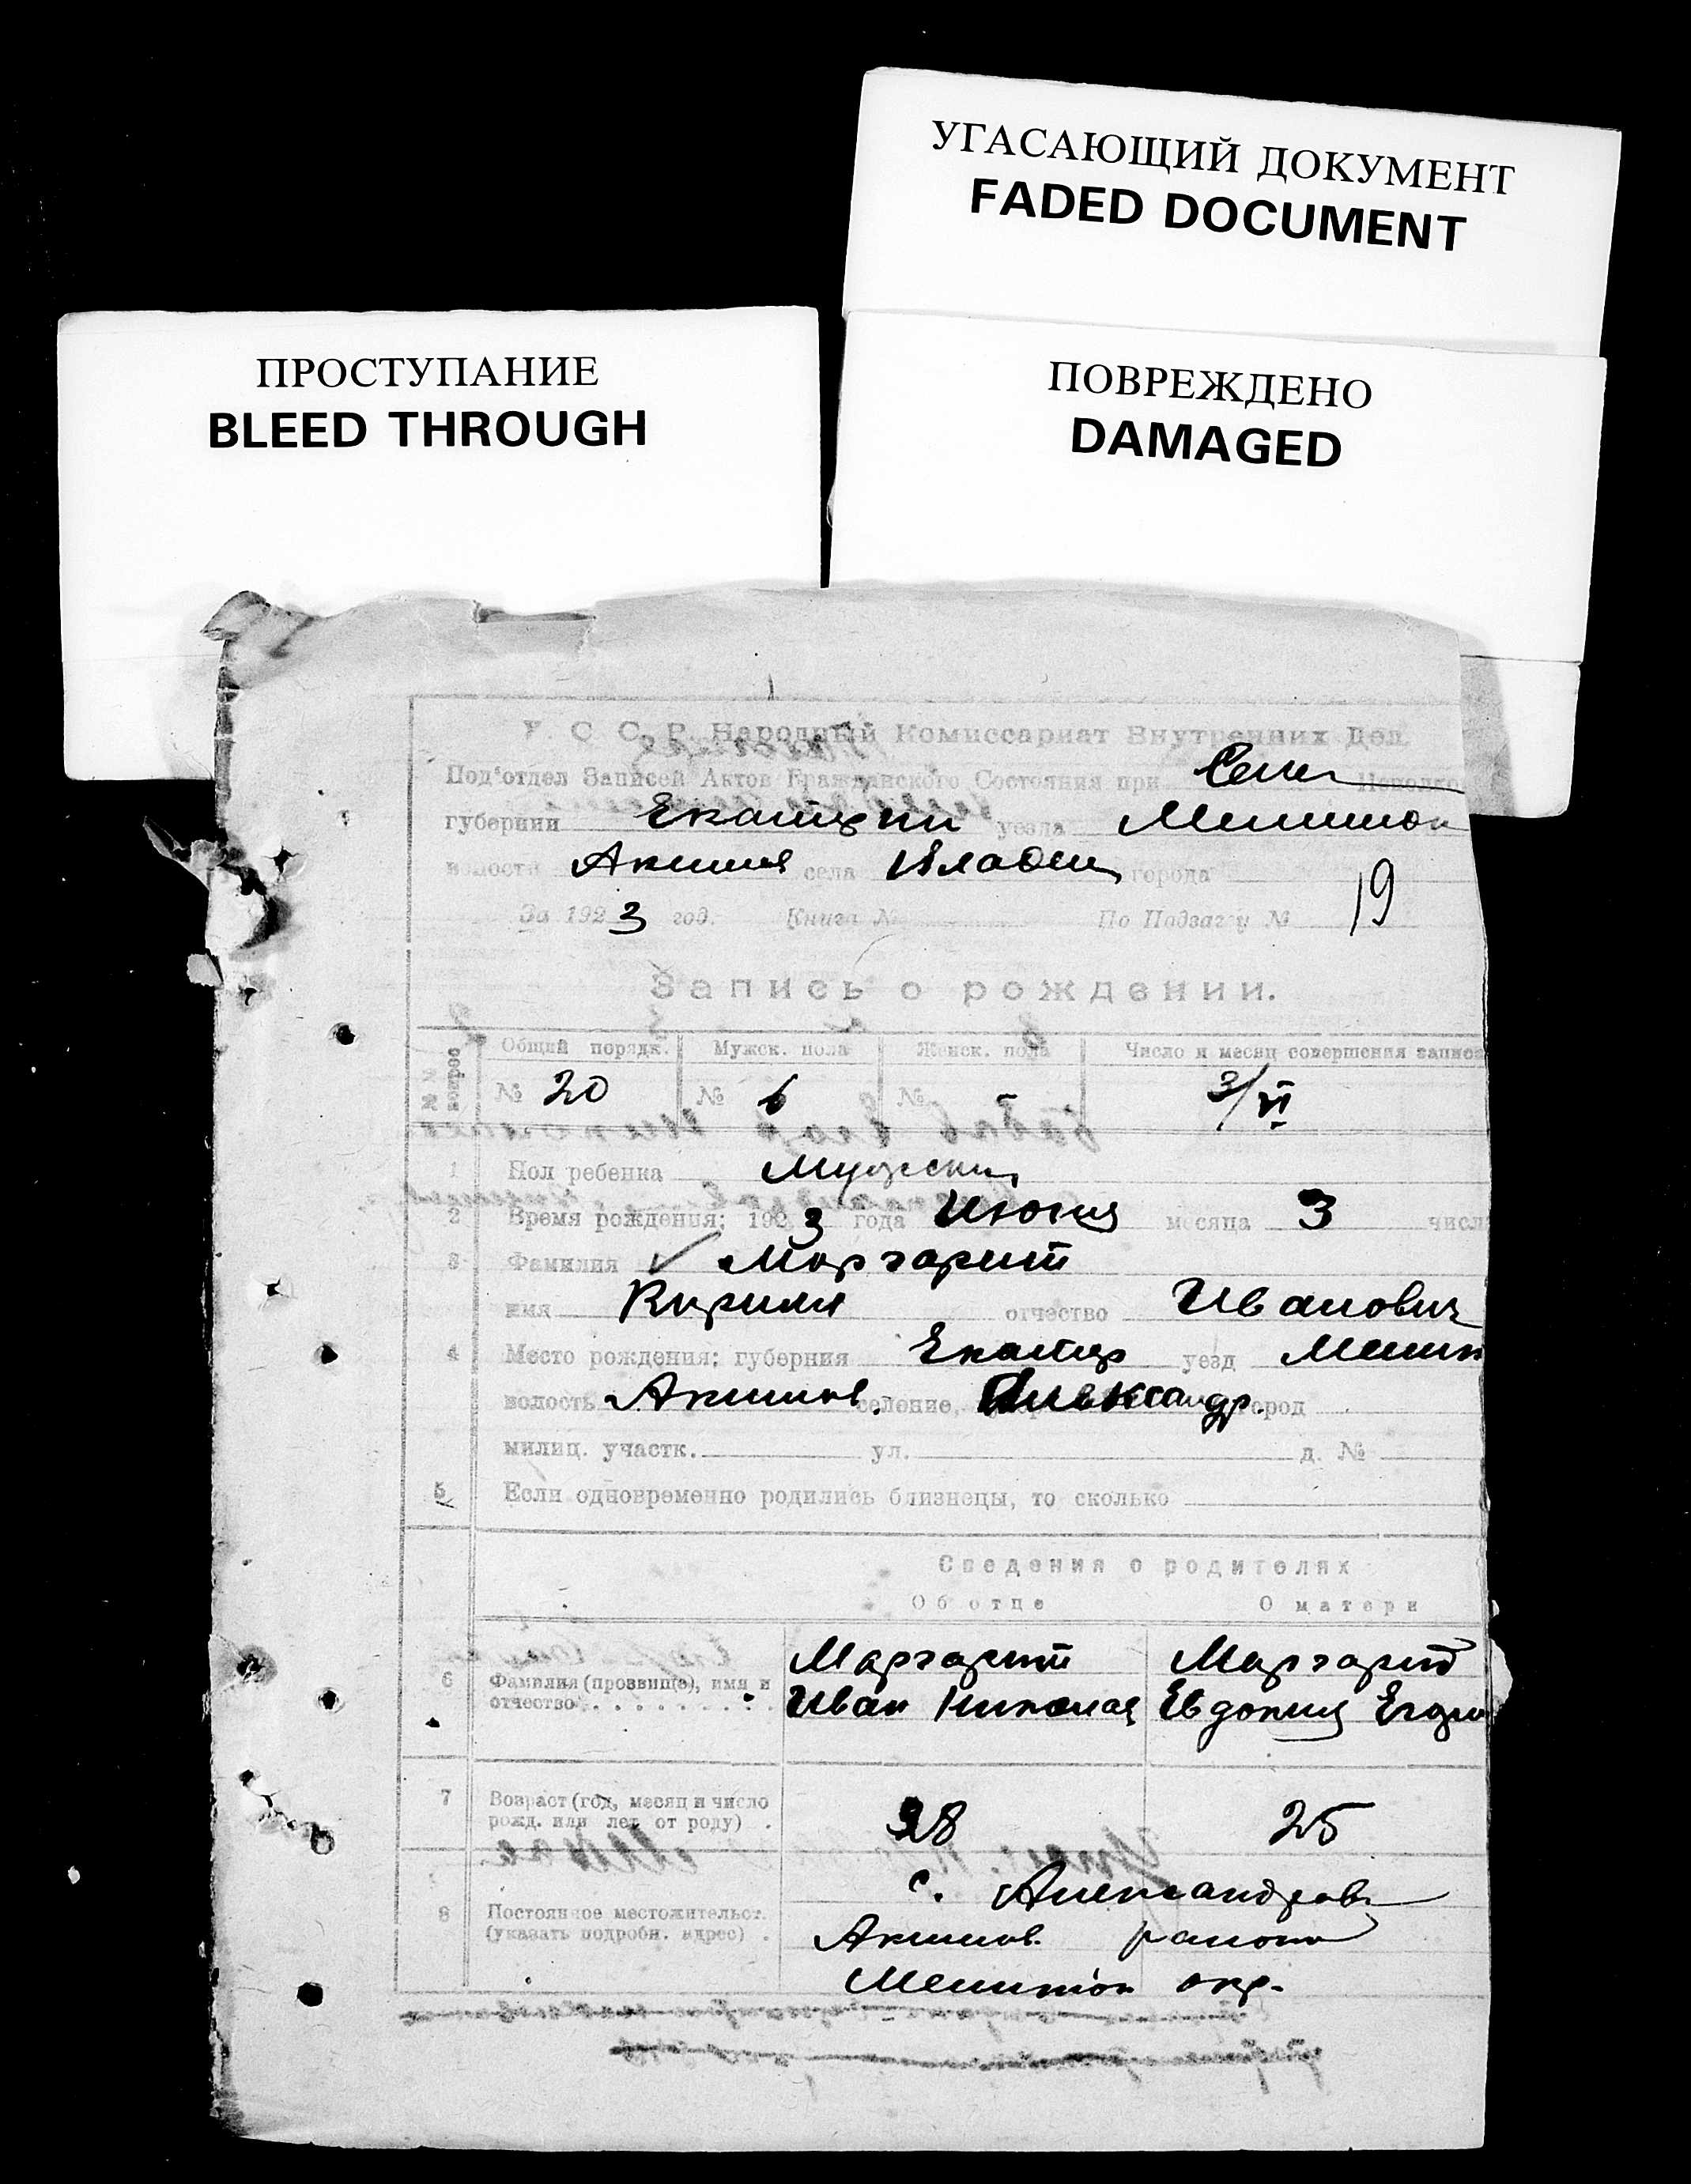 УГАСАЮЩИЙ ДОКУМЕНТ
FADED DOCUMENT
ПРОСТУПАНИЕ
BLEED THROUGH
ПОВРЕЖДЕНО
DAMAGED
У. С. С. Р. Народный Комиссариат Внутренних Дел.
Под'отдел Записей Актов Гражданского Состояния при Исполко
губернии Екатерин уезда
волости Акимов села Владим города
За 1923 год. Книга № По Подзагу № 19
Запись о рождении.
№№ вопрос Общий порядк. Мужск. пола Женск. пола Число и месяц совершения записи
№ 20 № 6 № - 3/VI
1 Пол ребенка Мужски
2 Время рождения: 1923 года Июня месяца 3 числ
3 Фамилия ✓ Маргарит
имя Кирилл отчество Иванович
4 Место рождения: губерния Екатер уезд Мелит
волость Акимов. селение, Александр. город
милиц. участк. ул. д. №
5 Если одновременно родились близнецы, то сколько
Сведения о родителях
Об отце О матери
6 Фамилия (прозвище), имя и отчество Маргарит Маргарит
Иван Николая Евдокия Егоро
7 Возраст (год, месяц и число рожд. или лет от роду) 28 25
8 Постоянное местожительст. (указать подробн. адрес) с. Александровк
Акимов. района
Мелитоп окр.